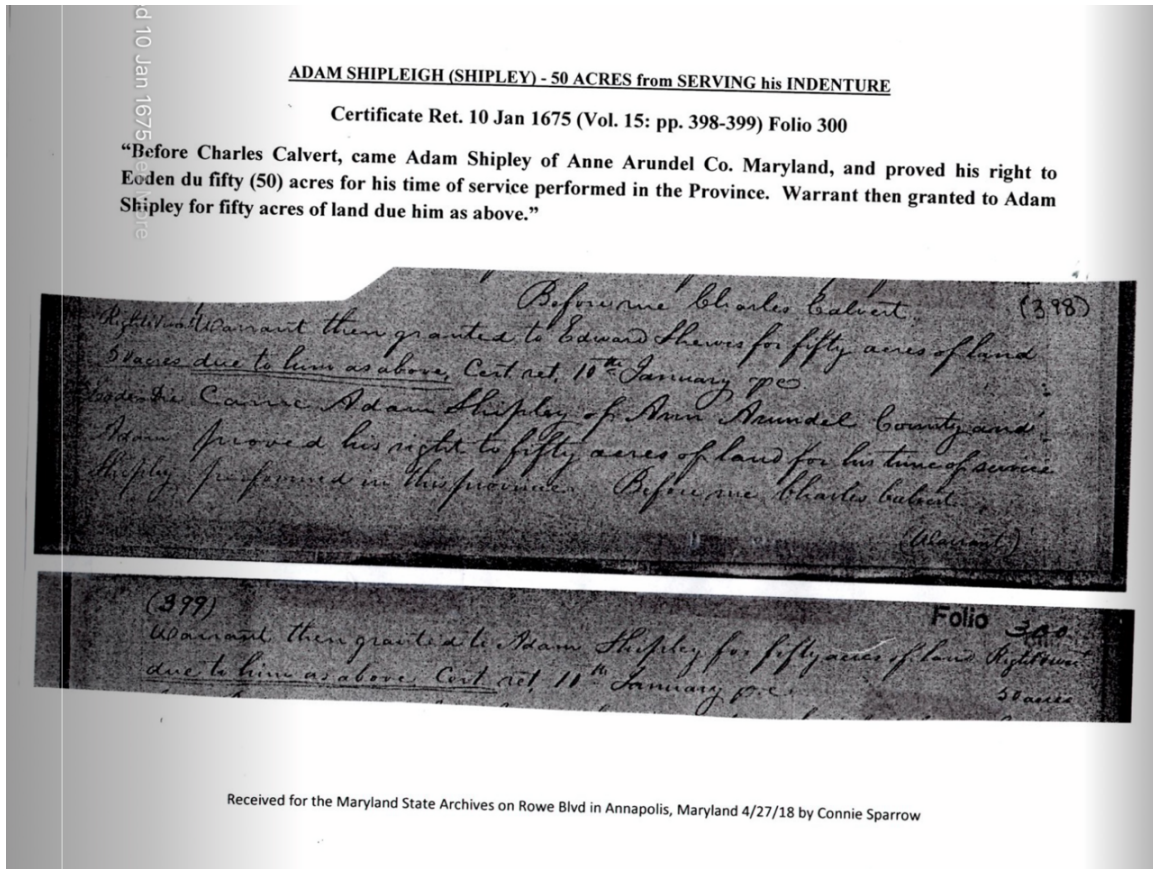 ADAM SHIPLEIGH (SHIPLEY) - 50 ACRES from SERVING his INDENTURE
Certificate Ret. 10 Jan 1675 (Vol. 15: pp. 398-399) Folio 300
“Before Charles Calvert, came Adam Shipley of Anne Arundel Co. Maryland, and proved his right to
Eoden du fifty (50) acres for his time of service performed in the Province. Warrant then granted to Adam
Shipley for fifty acres of land due him as above.”
d 10 Jan 1675
Before me Charles Calvert. (398)
Warrant then granted to Edward Shewes for fifty acres of land
50 acres due to him as above, Cert. ret. 10th January
Came Adam Shipley of Ann Arundel County and
Adam proved his right to fifty acres of land for his time of service
Shipley performed in this province. Before me Charles Calvert.
(Warrant)
(399) Folio 300
Warrant then granted to Adam Shipley for fifty acres of land
due to him as above Cert. ret. 10th January 50 acres
Received for the Maryland State Archives on Rowe Blvd in Annapolis, Maryland 4/27/18 by Connie Sparrow